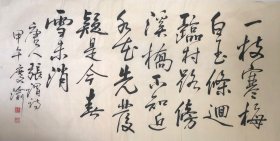 一枝寒梅
白玉條迴
臨村路傍
溪橋不知近
水花先發
疑是今春
雪未消
唐人張謂詩
甲午